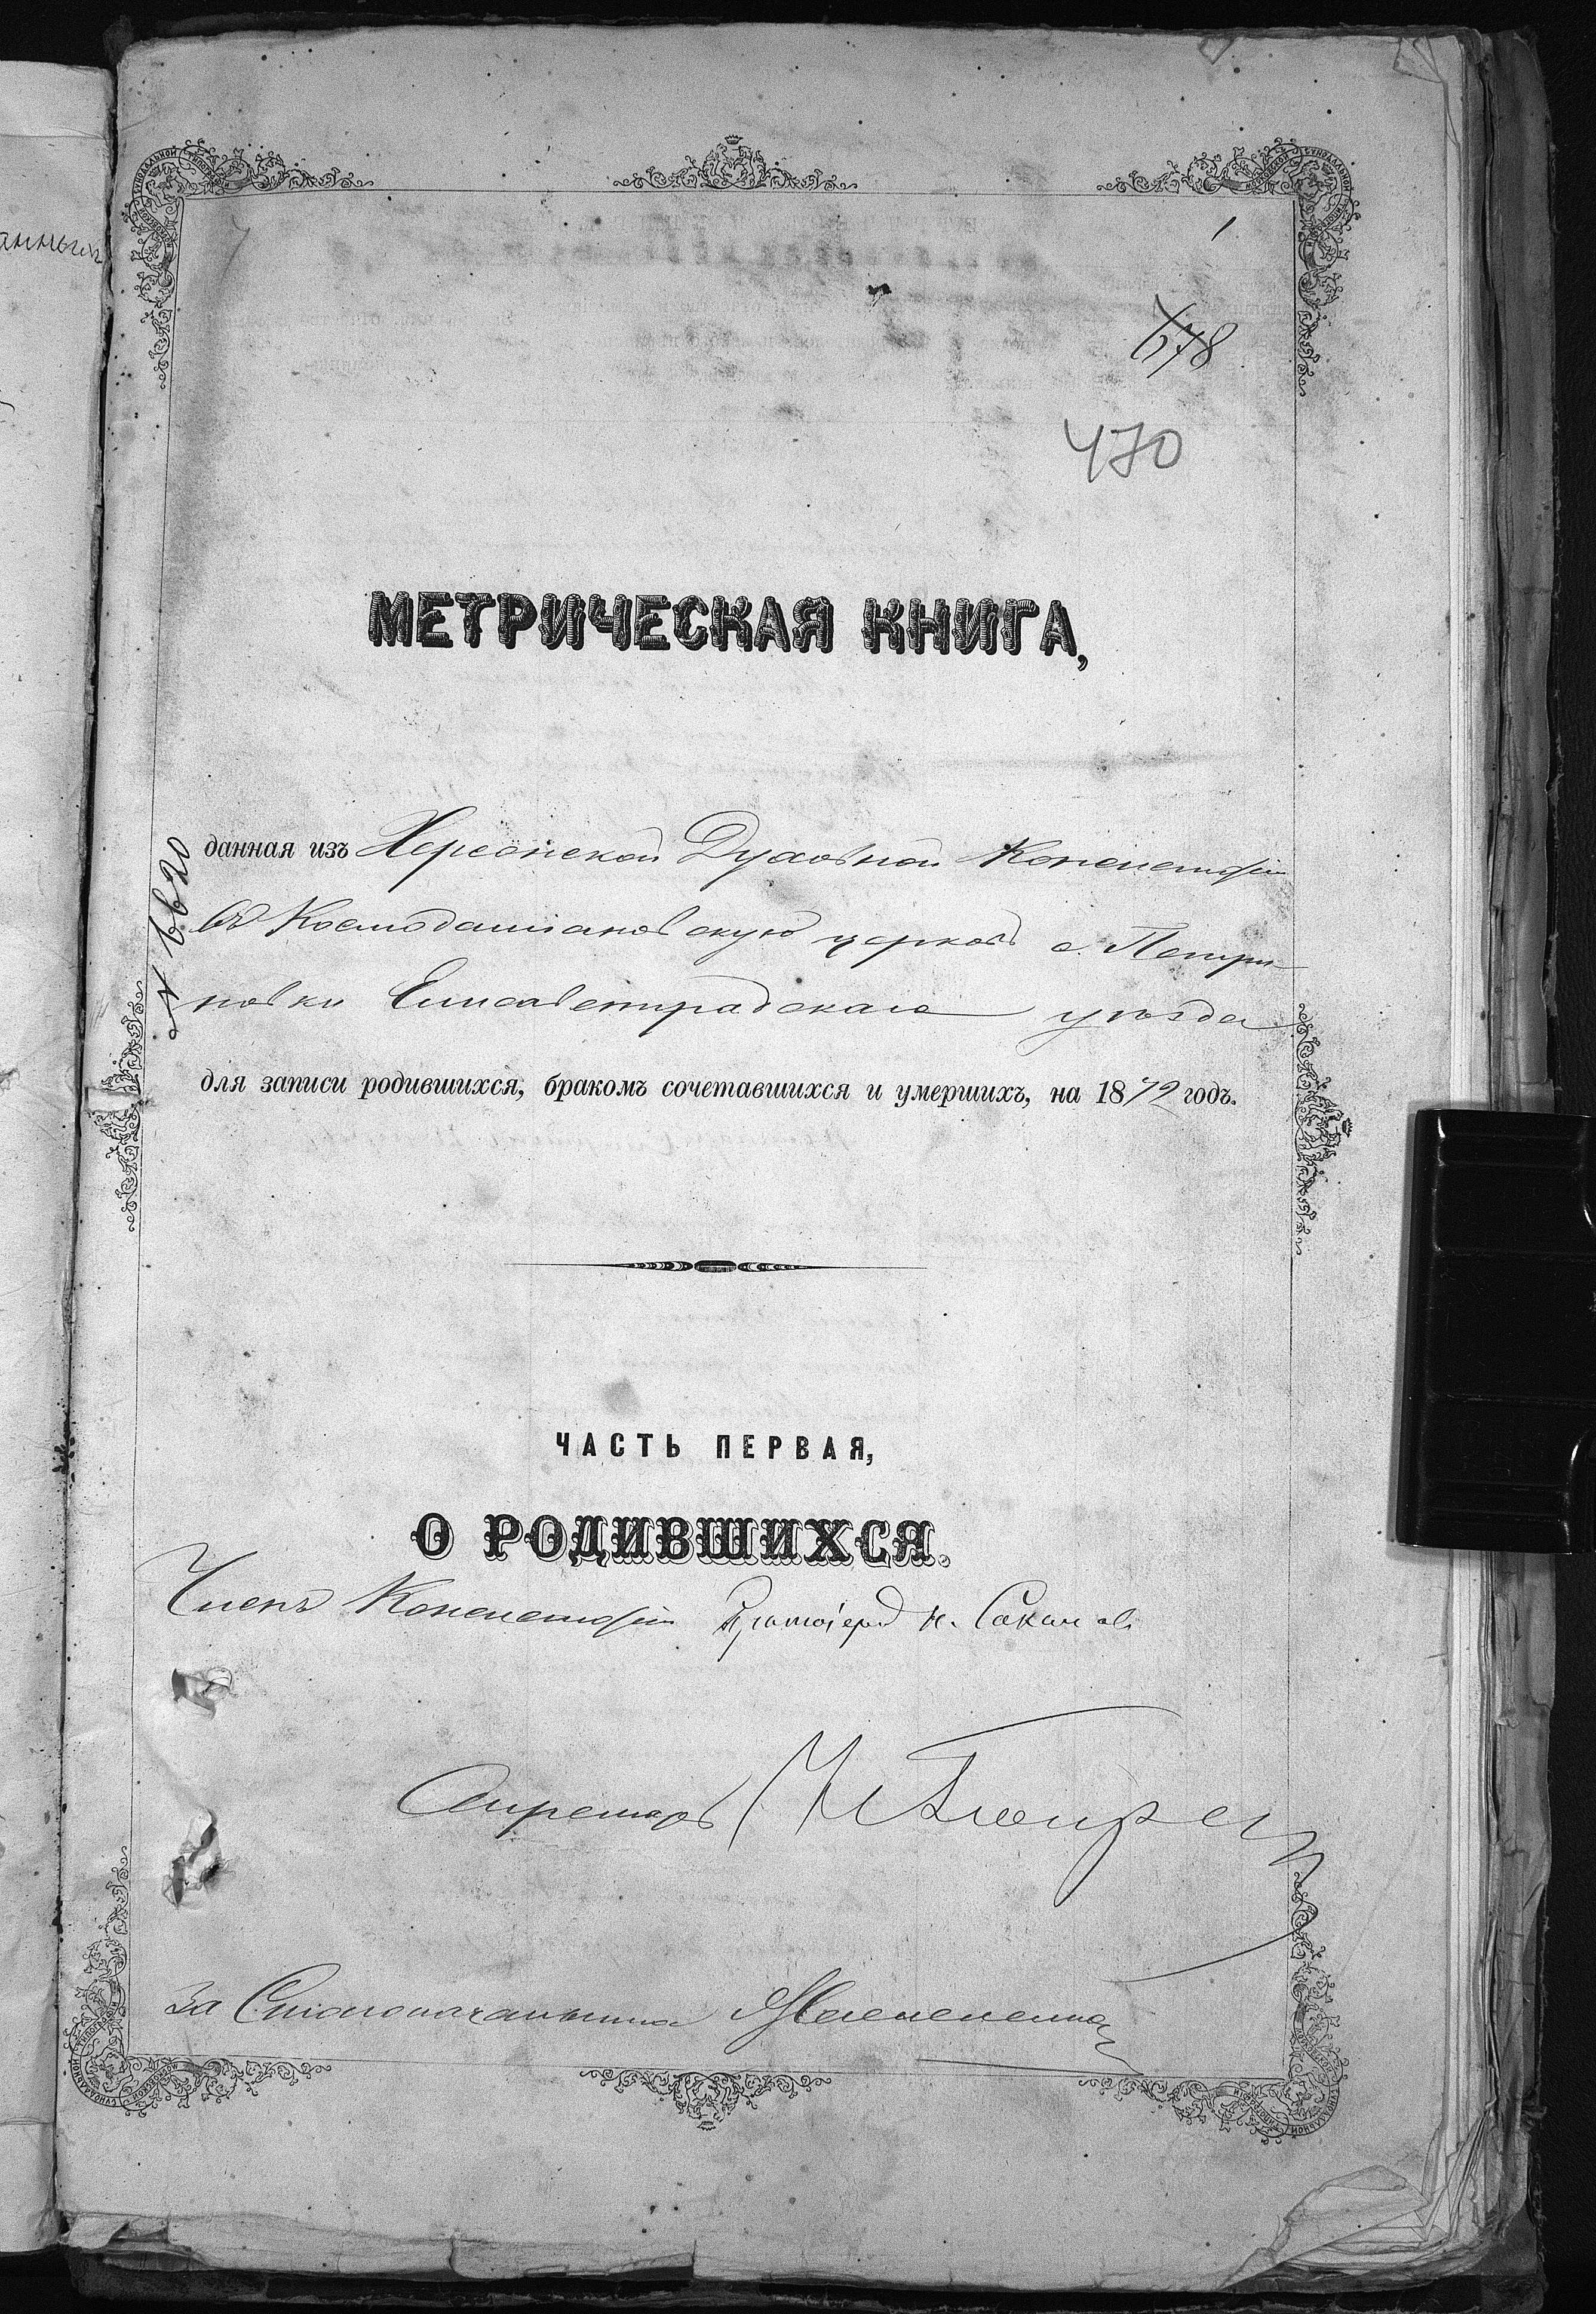 1
578
470
МЕТРИЧЕСКАЯ КНИГА,
№ 6620
данная изъ Херсонской Духовной Консисторіи
въ Космодаміановскую церковь с. Петри-
новки Елисаветградскаго уѣзда
для записи родившихся, бракомъ сочетавшихся и умершихъ, на 1872 годъ.
ЧАСТЬ ПЕРВАЯ,
О РОДИВШИХСЯ.
Членъ Консисторіи Протоіерей
Секретарь
За Столоначальника